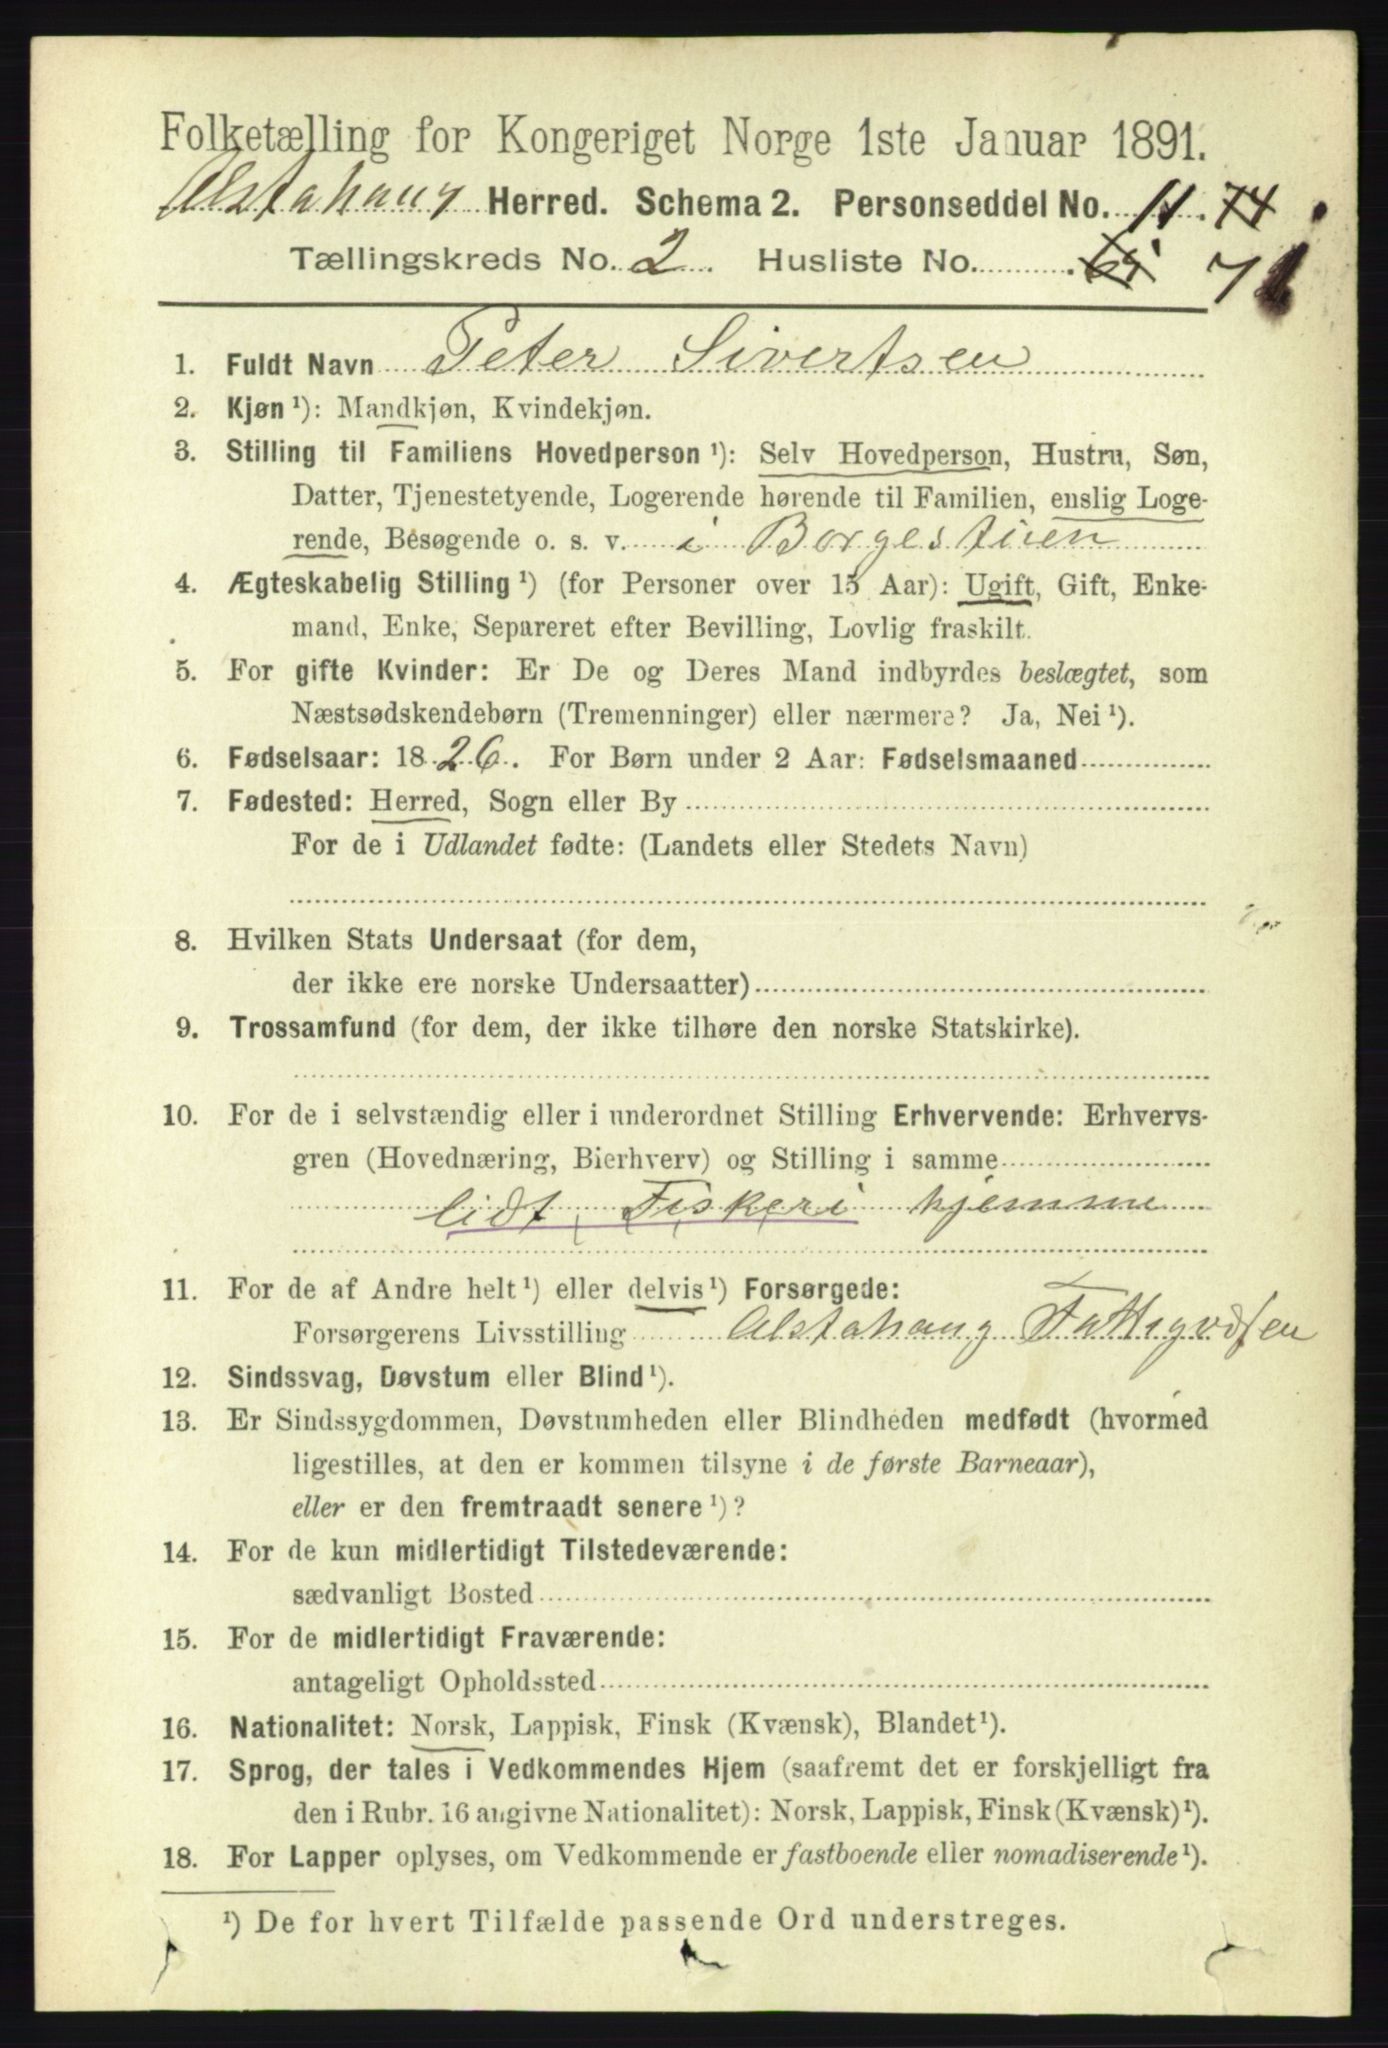 Folketælling for Kongeriget Norge 1ste Januar 1891.
Alstahaug Herred. Schema 2. Personseddel No. 11. 74
Tællingskreds No. 2. Husliste No. 71
1. Fuldt Navn Peter Sivertsen
2. Kjøn ¹): Mandkjøn, Kvindekjøn.
3. Stilling til Familiens Hovedperson ¹): Selv Hovedperson, Hustru, Søn,
Datter, Tjenestetyende, Logerende hørende til Familien, enslig Loge-
rende, Besøgende o. s. v. i Borgestuen
4. Ægteskabelig Stilling ¹) (for Personer over 15 Aar): Ugift, Gift, Enke-
mand, Enke, Separeret efter Bevilling, Lovlig fraskilt.
5. For gifte Kvinder: Er De og Deres Mand indbyrdes beslægtet, som
Næstsødskendebørn (Tremenninger) eller nærmere? Ja, Nei ¹).
6. Fødselsaar: 1826. For Børn under 2 Aar: Fødselsmaaned
7. Fødested: Herred, Sogn eller By
For de i Udlandet fødte: (Landets eller Stedets Navn)
8. Hvilken Stats Undersaat (for dem,
der ikke ere norske Undersaatter)
9. Trossamfund (for dem, der ikke tilhøre den norske Statskirke).
10. For de i selvstændig eller i underordnet Stilling Erhvervende: Erhvervs-
gren (Hovednæring, Bierhverv) og Stilling i samme
lidt Fiskeri hjemme
11. For de af Andre helt ¹) eller delvis ¹) Forsørgede:
Forsørgerens Livsstilling Alstahaug Fattigvæsen
12. Sindssvag, Døvstum eller Blind ¹).
13. Er Sindssygdommen, Døvstumheden eller Blindheden medfødt (hvormed
ligestilles, at den er kommen tilsyne i de første Barneaar),
eller er den fremtraadt senere ¹)?
14. For de kun midlertidigt Tilstedeværende:
sædvanligt Bosted
15. For de midlertidigt Fraværende:
antageligt Opholdssted
16. Nationalitet: Norsk, Lappisk, Finsk (Kvænsk), Blandet ¹).
17. Sprog, der tales i Vedkommendes Hjem (saafremt det er forskjelligt fra
den i Rubr. 16 angivne Nationalitet): Norsk, Lappisk, Finsk (Kvænsk) ¹).
18. For Lapper oplyses, om Vedkommende er fastboende eller nomadiserende ¹).
¹) De for hvert Tilfælde passende Ord understreges.